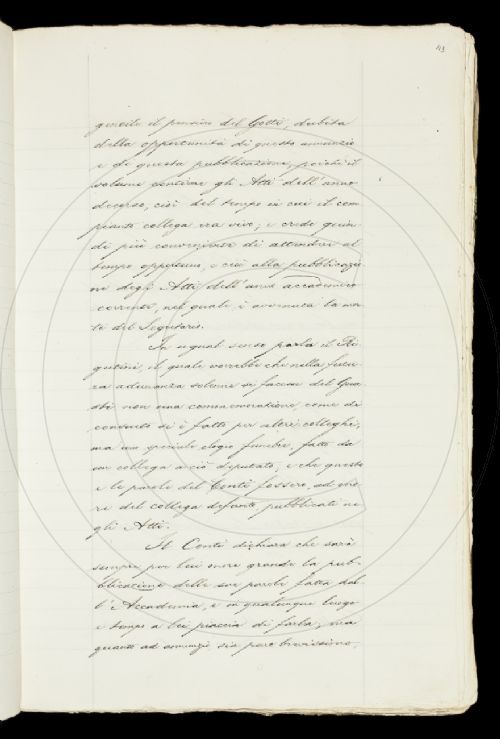 43
gentile il pensiero del Gotti, dubita
della opportunità di questo annunzio
e di questa pubblicazione, poichè il
volume contiene gli Atti dell'anno
decorso, cioè del tempo in cui il com
pianto collega era vivo; e crede quin
di più conveniente di attendere al
tempo opportuno, e cioè alla pubblicazio
ne degli Atti dell'anno accademico
corrente, nel quale è avvenuta la mor
te del Segretario.
In ugual senso parla il Ri
gutini, il quale vorrebbe che nella futu
ra adunanza solenne si facesse del Gua
sti non una commemorazione, come di
consueto si è fatto per altri colleghi,
ma un speciale elogio funebre, fatto da
un collega a ciò deputato, e che questo
e le parole del Conti fossero, ad ono
re del collega defunto, pubblicati ne
gli Atti.
Il Conti dichiara che sarà
sempre per lui onore grande la pub-
blicazione delle sue parole fatta dal
l'Accademia, e in qualunque luogo
e tempo a lei piaccia di farla; ma
quanto ad annunzio sia pure brevissimo,